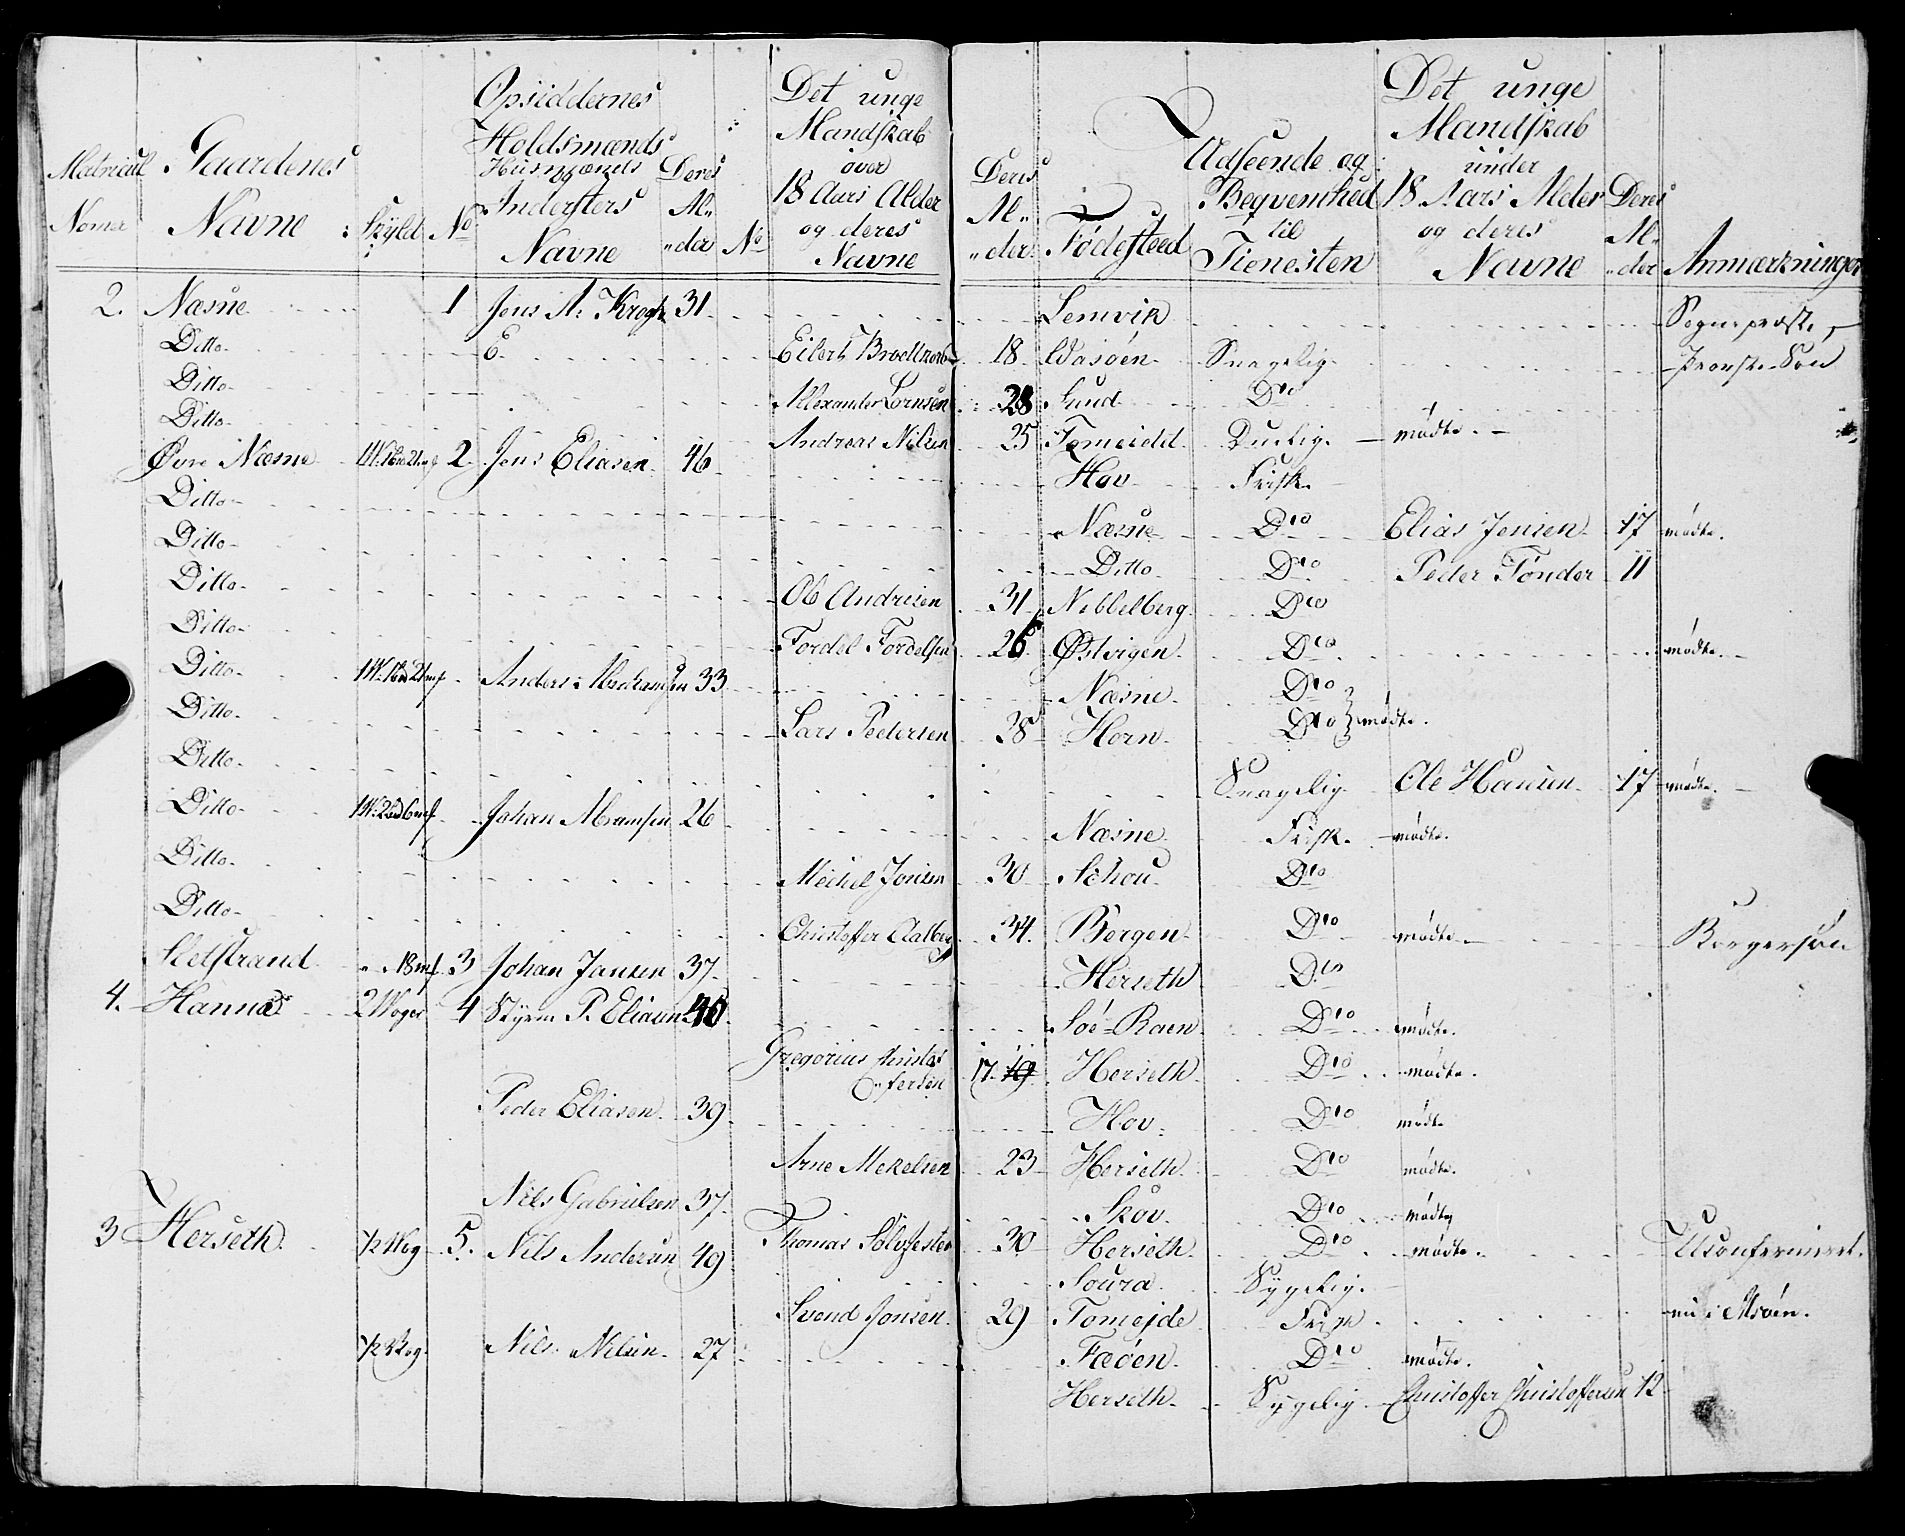 Matricul Nomer | Gaardenes Navne | Skyld | No | Opsiddernes Holdsmænds Husmænds og Indersters Navne | Deres Al„ „der | No | Det unge Mandskab over 18 Aars Alder og deres Navne | Deres Al„ „der | Fødesteed | Udseende og Beqvemhed til Tienesten | Det unge Mandskab under 18 Aars Alder og deres Navne | Deres Al„ „der | Anmærkninger
2. Næsne 1 Jens A: Krogh 31 Lemvik Sognepræst
Ditto E. Eilert 18 Svagelig Søn
Ditto Alexander Lornsen 28 Sund Dito
Ditto Andreas Nilsen 25 Tomeidd Duelig mødte
Øvre Næsne 2. Jens Eliasen 46 Hov Frisk
Ditto Næsne Dito Elias Jensen 17 mødte.
Ditto Ditto Dito Peder Tønder 11
Ditto Ole Andresen 31 Nebbelberg Dito
Ditto Tordel Tordelsen 26 Østvigen Dito mødte
Ditto Anders Abrahamsen 33 Næsne Dito
Ditto Lars Pedersen 38 Horn Dito mødte.
Ditto Svagelig Ole Hansen 17 mødte.
Ditto Johan Abramsen 26 Næsne Frisk mødte.
Ditto Michel Jonsen 30 Schou Dito
Ditto Christoffer Aalberg 34. Bergen Dito mødte
Sletstrand 18 mk 3 Johan Jansen 37 Herseth Dito
4. Hannæs 2 Woger 4 Styrm P. Eliasen 40 Søe-Raen Dito mødte.
Gregorius Christof
„fersen 17 19 Herseth Dito mødte.
Peder Eliasen 39 Hov Dito mødte
Arne Mekelsen 23 Herseth Dito mødte.
Nils Gabrielsen 37 Skov Dito mødte
3 Herseth 1/2 Wog 5. Nils Andersen 49 Thomas Sølvfester 30 Herseth Dito mødte. Ukonfermeret.
Soura Sygelig
Svend Jonsen 29 Tomejde Frisk
1/2 Wog Nils Nilsen 27 Fæøen Dito mødte.
Herseth Sygelig Christoffer Christoffersen 12